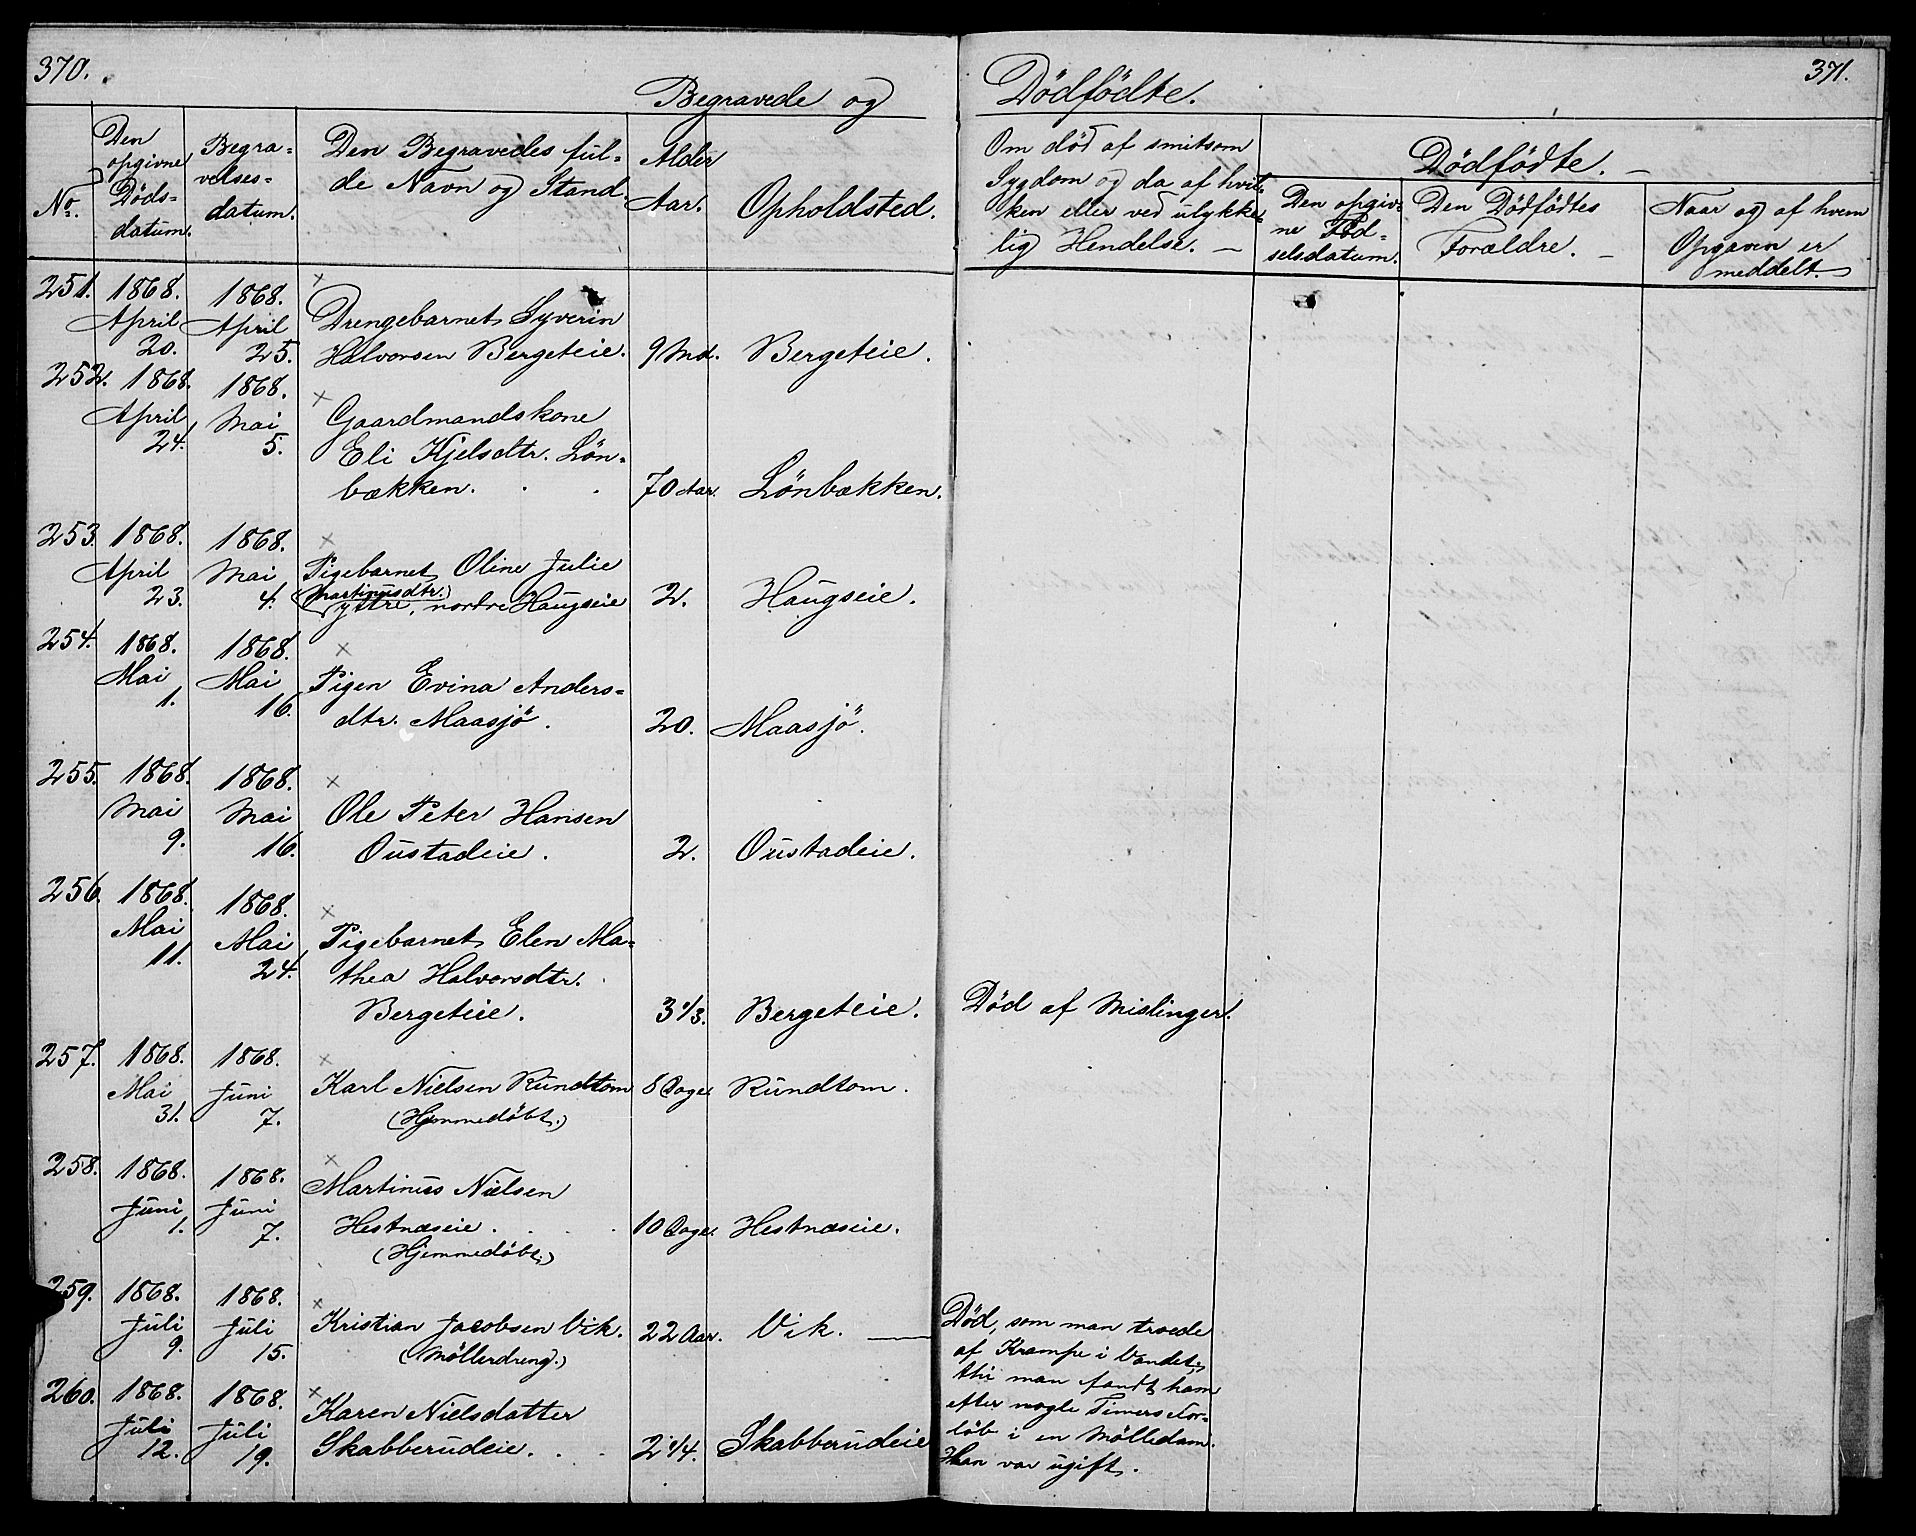 370.
Begravede og
Dödfödte.
371.
No.
Den opgivne Döds-datum.
Begra-velses-datum.
Den Begravedes ful-
de Navn og Stand.
Alder
Aar.
Opholdsted.
Om död af smitsom
Sygdom og da af hvil-
ken eller ved ulykke-
lig Hendelse. —
Dödfödte. —
Den opgiv-
ne Föd-
selsdatum.
Den Dödfödtes
Forældre. —
Naar og af hvem
Opgaven er
meddelt.
251. 1868. 1868. ×
April April Drengebarnet Syverin
20. 25. Halvorsen Bergeteie. 9 Md. Bergeteie.
252. 1868. 1868. ×
April Mai Gaardmandskone
24. 5. Eli Kjelsdtr. Lön-
bækken. . . 70 Aar. Lönbækken.
253. 1868. 1868. ×
April Mai Pigebarnet Oline Julie
(Martinusdtr.)
23. 4. ystre, nordre Haugseie 2. Haugseie.
254. 1868. 1868. ×
Mai Mai Pigen Evina Anders-
1. 16. dtr. Maasjö. 20. Maasjö.
255. 1868. 1868. ×
Mai Mai Ole Peter Hansen
9. 16. Oustadeie. 2. Oustadeie.
256. 1868. 1868. ×
Mai Mai Pigebarnet Elen Ma-
11. 24. thea Halvorsdtr.
Bergeteie. 3 1/3. Bergeteie. Död af Mislinger.
257. 1868. 1868. ×
Mai Juni Karl Nielsen Rundtom 8 Dage. Rundtom.
31. 7. (Hjemmedöbt.)
258. 1868. 1868. ×
Martinus Nielsen
Juni Juni Hestnæseie. . . . 10 Dage. Hestnæseie.
1. 7. (Hjemmedöbt.)
259. 1868. 1868. ×
Juli Juli Kristian Jacobsen Vik. 22 Aar. Vik. —
9. 15. (Möllerdreng.)
Död, som man troede
af Krampe i Vandet,
thi man fandt ham
efter nogle Timers For-
löb i en Mölledam.
Han var ugift.
260. 1868. 1868. ×
Juli Juli Karen Nielsdatter
12. 19. Skabberudeie. . . 2 1/4. Skabberudeie